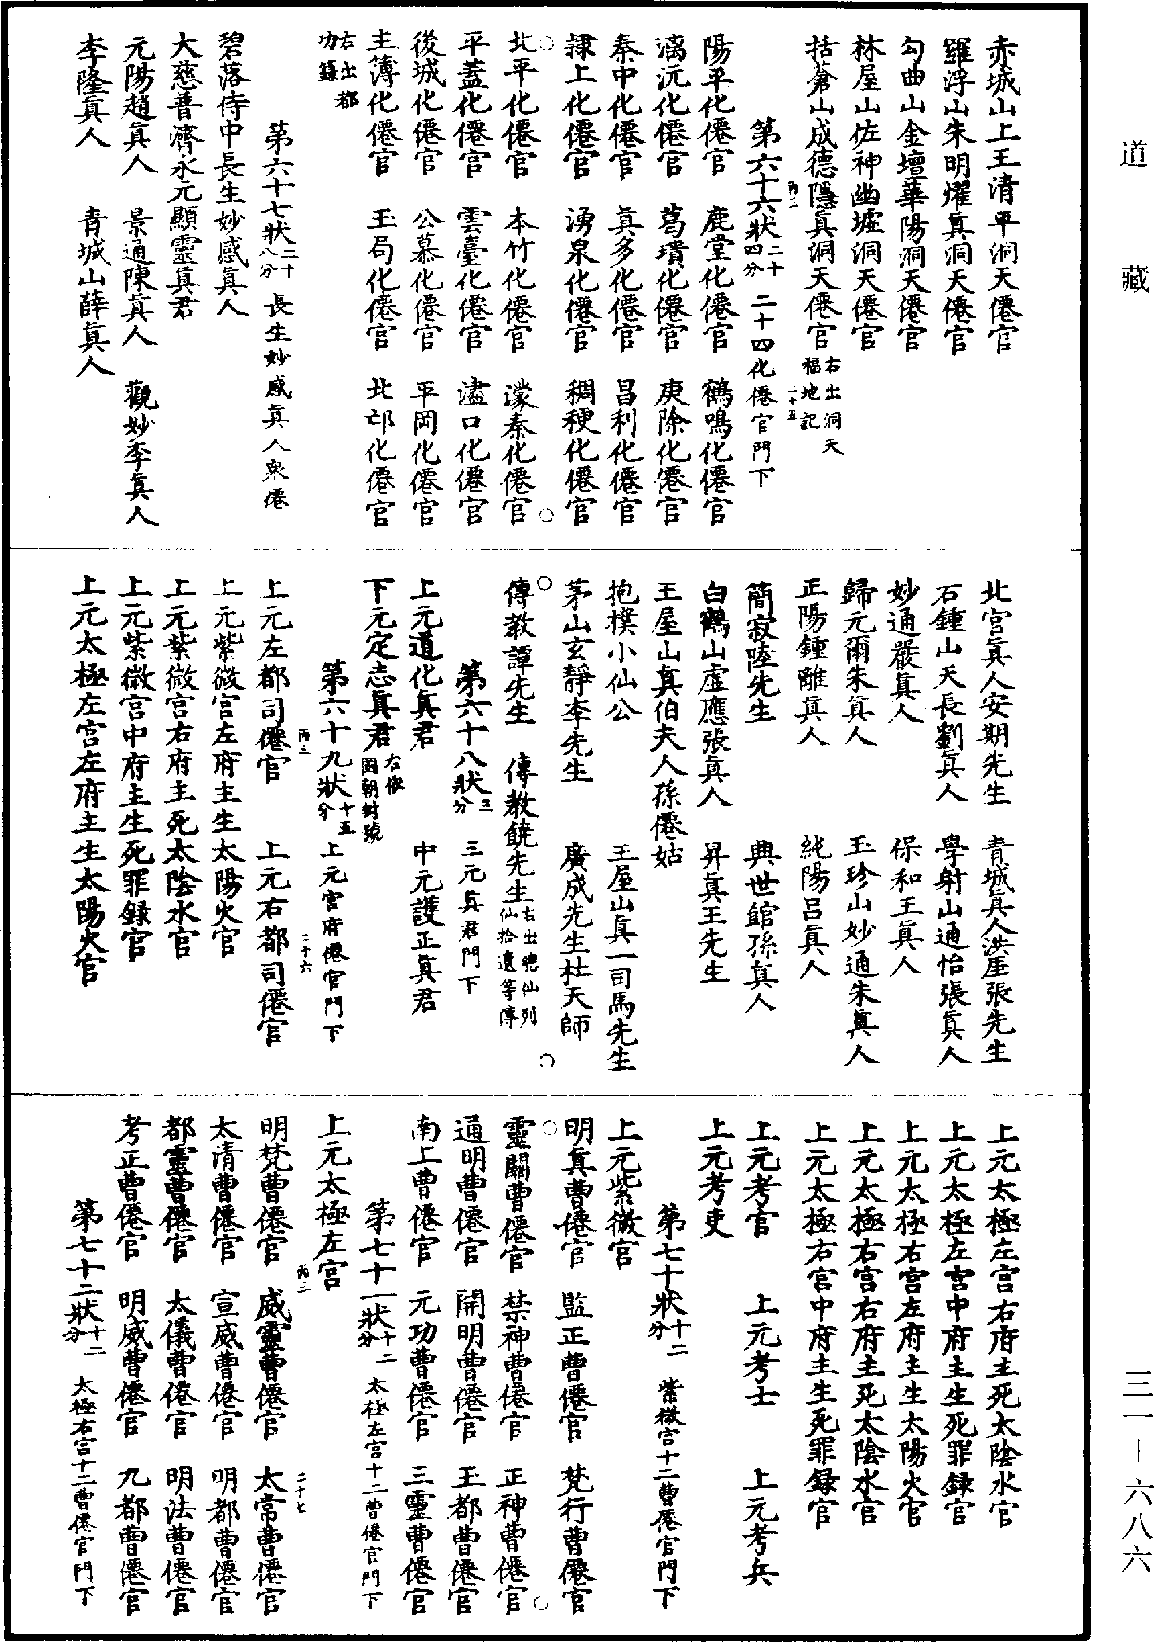 道藏
三一—六八六
赤城山上玉清平洞天僊官
羅浮山朱明燿真洞天僊官
勾曲山金壇華陽洞天僊官
林屋山佐神幽墟洞天僊官
括蒼山成德隱真洞天僊官 右出洞天福地記
第六十六狀 二十四分 二十四化僊官門下
陽平化僊官 鹿堂化僊官 鶴鳴化僊官
漓沅化僊官 葛璝化僊官 庚除化僊官
秦中化僊官 真多化僊官 昌利化僊官
隸上化僊官 湧泉化僊官 稠稉化僊官
北平化僊官 本竹化僊官 濛秦化僊官
平蓋化僊官 雲臺化僊官 濜口化僊官
後城化僊官 公慕化僊官 平岡化僊官
主簿化僊官 玉局化僊官 北邙化僊官
右出都功籙
第六十七狀 二十八分 長生妙感真人衆僊
碧落侍中長生妙感真人
大慈普濟永元顯靈真君
元陽趙真人 景通陳真人 觀妙李真人
李隆真人 青城山薛真人
北宮真人安期先生 青城真人洪厓張先生
石鍾山天長劉真人 學射山通怡張真人
妙通嚴真人 保和王真人
歸元爾朱真人 玉珍山妙通朱真人
正陽鍾離真人 純陽呂真人
簡寂陸先生 興世館孫真人
白鶴山虛應張真人 昇真王先生
王屋山真伯夫人孫僊姑
抱樸小仙公 王屋山真一司馬先生
茅山玄靜李先生 廣成先生杜天師
傳教譚先生 傳教饒先生 右出總仙列仙拾遺等傳
第六十八狀 三分 三元真君門下
上元道化真君 中元護正真君
下元定志真君 右依國朝封號
第六十九狀 十五分 上元宮府僊官門下
上元左都司僊官 上元右都司僊官
上元紫微宮左府主生太陽火官
上元紫微宮右府主死太陰水官
上元紫微宮中府主生死罪録官
上元太極左宮左府主生太陽火官
上元太極左宮右府主死太陰水官
上元太極左宮中府主生死罪録官
上元太極右宮左府主生太陽火官
上元太極右宮右府主死太陰水官
上元太極右宮中府主生死罪録官
上元考官 上元考士 上元考兵
上元考吏
第七十狀 十二分 紫微宮十二曹僊官門下
上元紫微宮
明真曹僊官 監正曹僊官 梵行曹僊官
靈關曹僊官 禁神曹僊官 正神曹僊官
通明曹僊官 開明曹僊官 玉都曹僊官
南上曹僊官 元功曹僊官 三靈曹僊官
第七十一狀 十二分 太極左宮十二曹僊官門下
上元太極左宮
明梵曹僊官 威靈曹僊官 太常曹僊官
太清曹僊官 宣威曹僊官 明都曹僊官
都靈曹僊官 太儀曹僊官 明法曹僊官
考正曹僊官 明威曹僊官 九都曹僊官
第七十二狀 十二分 太極右宮十二曹僊官門下